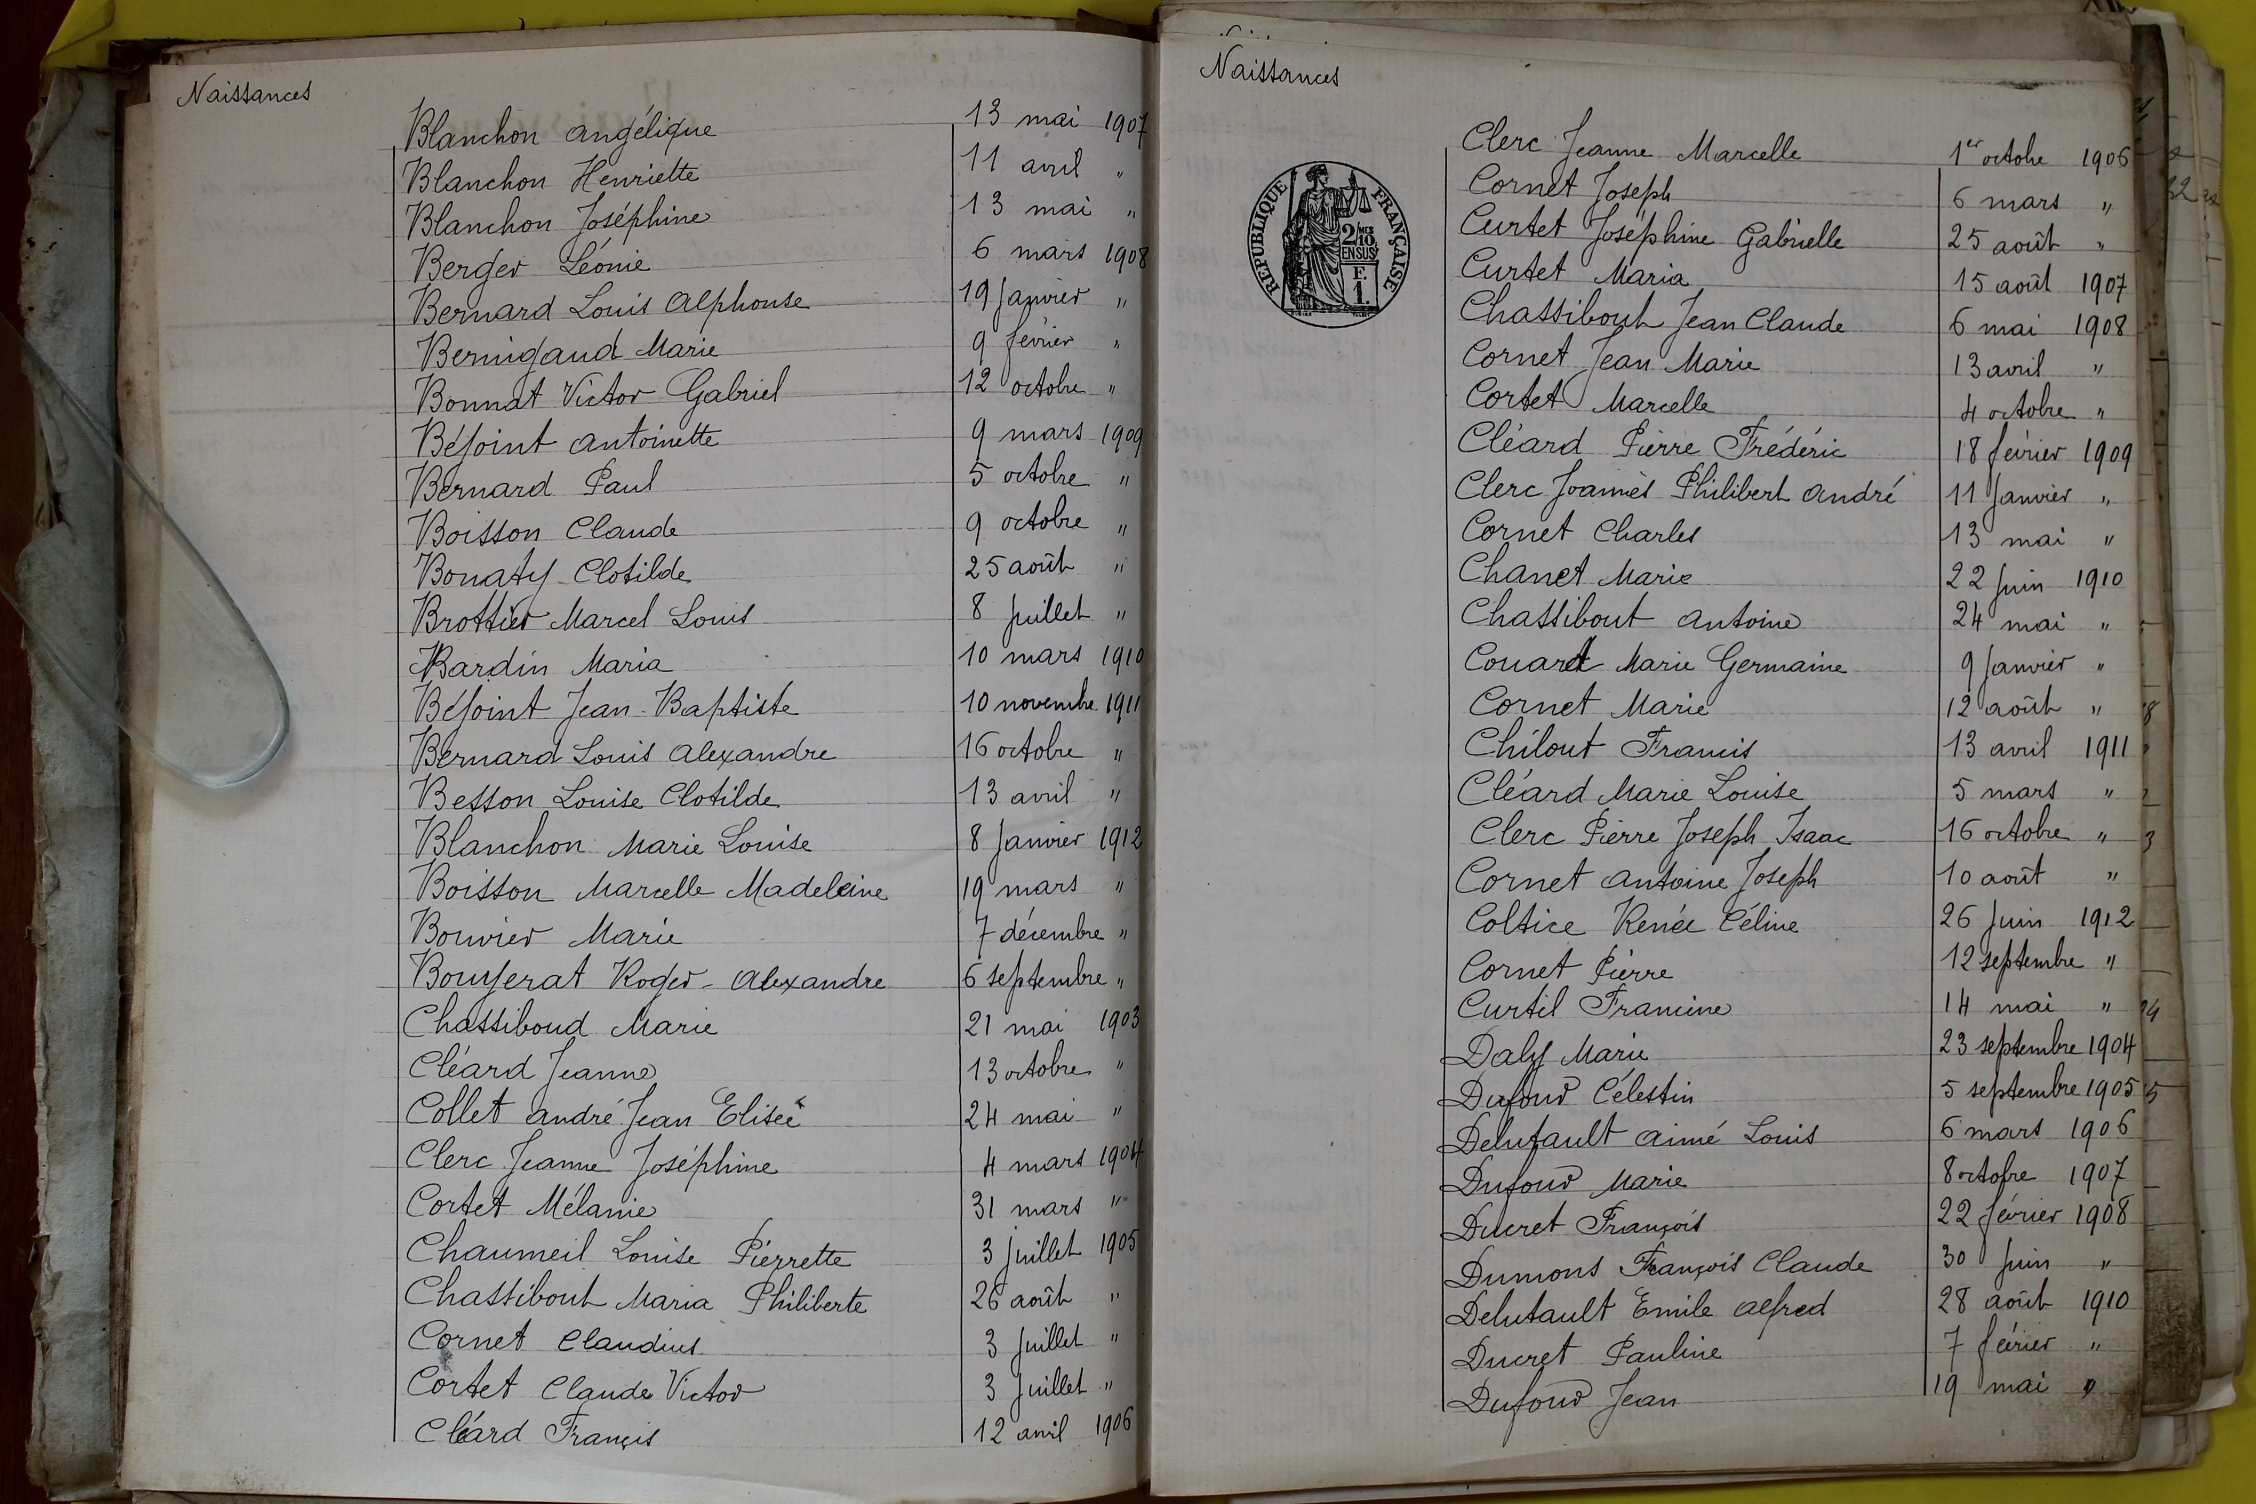 Naissances
Blanchon Angélique 13 mai 1907
Blanchon Henriette 11 avril "
Blanchon Joséphine 13 mai "
Berger Léonie 6 mars 1908
Bernard Louis Alphonse 19 Janvier "
Bernigaud Marie 9 février "
Bonnat Victor Gabriel 12 octobre "
Béjoint Antoinette 9 mars 1909
Bernard Paul 5 octobre "
Boisson Claude 9 octobre "
Bonaty Clotilde 25 août "
Brottier Marcel Louis 8 Juillet "
Bardin Maria 10 mars 1910
Béjoint Jean-Baptiste 10 novembre 1911
Bernard Louis Alexandre 16 octobre "
Besson Louise Clotilde 13 avril "
Blanchon Marie Louise 8 Janvier 1912
Boisson Marcelle Madeleine 19 mars "
Bouvier Marie 7 décembre "
Boujerat Roger-Alexandre 6 septembre "
Chassiboud Marie 21 mai 1903
Cléard Jeanne 13 octobre "
Collet André Jean Elisée 24 mai "
Clerc Jeanne Joséphine 4 mars 1904
Cortet Mélanie 31 mars "
Chaumeil Louise Pierrette 3 Juillet 1905
Chassibout Maria Philiberte 26 août "
Cornet Claudius 3 Juillet "
Cortet Claude Victor 3 Juillet "
Cléard Francis 12 avril 1906
Naissances
RÉPUBLIQUE FRANÇAISE
2/10 MES
EN SUS
F.
1.
Clerc Jeanne Marcelle 1er octobre 1906
Cornet Joseph 6 mars "
Curtet Joséphine Gabrielle 25 août "
Curtet Maria 15 août 1907
Chassibout Jean Claude 6 mai 1908
Cornet Jean Marie 13 avril "
Cortet Marcelle 4 octobre "
Cléard Pierre Frédéric 18 février 1909
Clerc Joannès Philibert André 11 Janvier "
Cornet Charles 13 mai "
Chanet Marie 22 Juin 1910
Chassibout Antoine 24 mai "
Couard Marie Germaine 9 Janvier "
Cornet Marie 12 août "
Chilout Francis 13 avril 1911
Cléard Marie Louise 5 mars "
Clerc Pierre Joseph Isaac 16 octobre "
Cornet Antoine Joseph 10 août "
Coltice Renée Céline 26 Juin 1912
Cornet Pierre 12 septembre "
Curtil Francine 14 mai "
Daly Marie 23 septembre 1904
Dufour Célestin 5 septembre 1905
Delutault Aimé Louis 6 mars 1906
Dufour Marie 8 octobre 1907
Ducret François 22 février 1908
Dumons François Claude 30 Juin "
Delutault Emile Alfred 28 août 1910
Ducret Pauline 7 février "
Dufour Jean 19 mai "